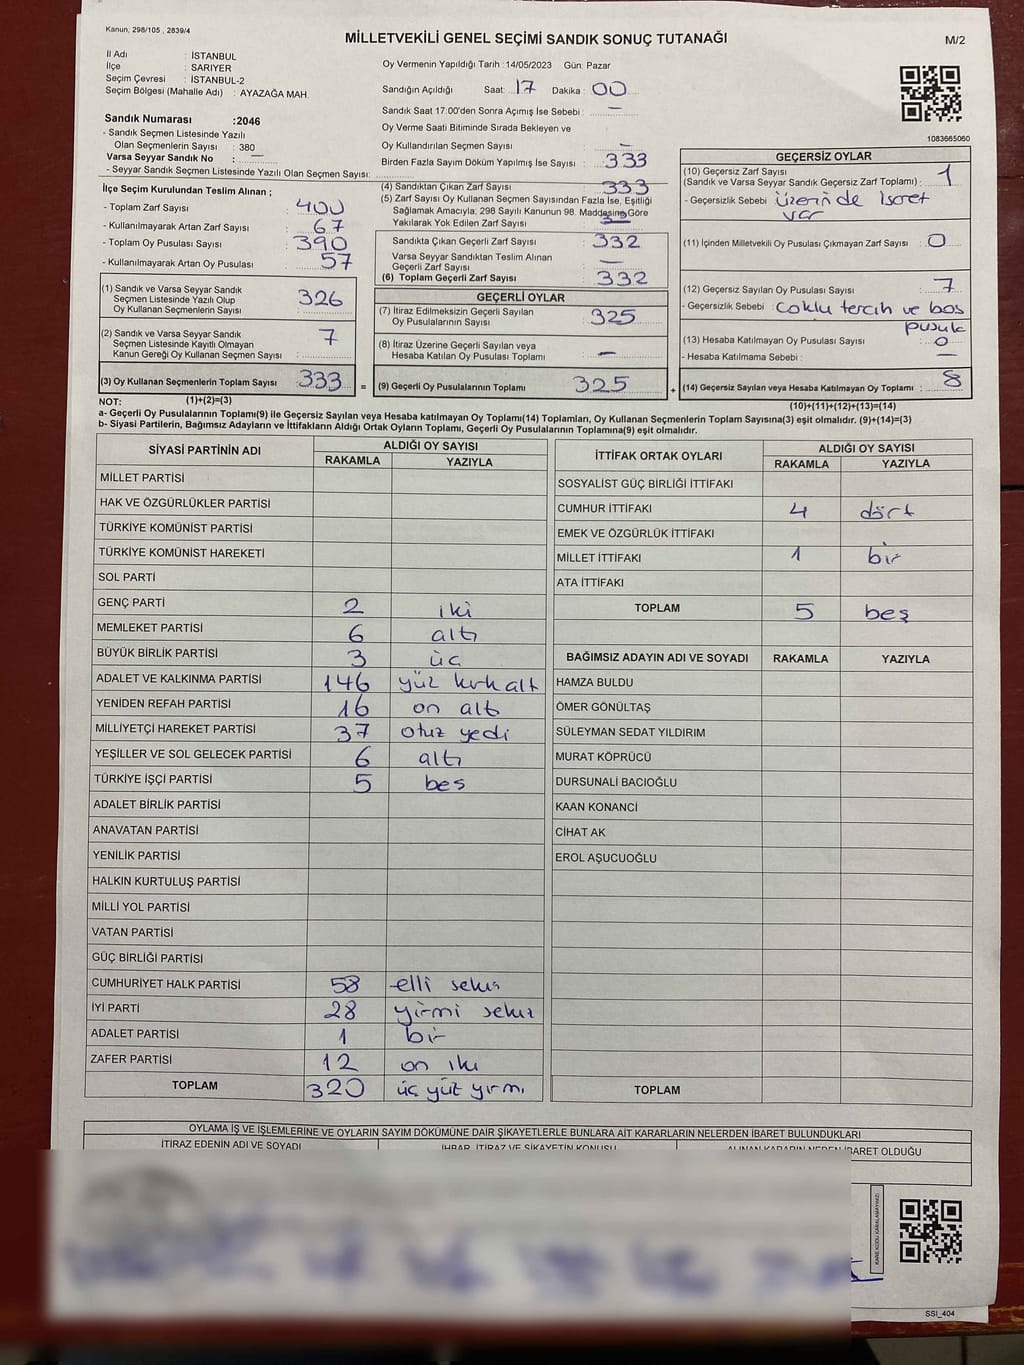 Kanun; 298/105 , 2839/4
MİLLETVEKİLİ GENEL SEÇİMİ SANDIK SONUÇ TUTANAĞI
M/2
İl Adı : İSTANBUL
İlçe : SARIYER
Seçim Çevresi : İSTANBUL-2
Seçim Bölgesi (Mahalle Adı) : AYAZAĞA MAH.
Oy Vermenin Yapıldığı Tarih :14/05/2023 Gün: Pazar
Sandığın Açıldığı Saat: 17 Dakika : 00
Sandık Saat 17:00'den Sonra Açımış İse Sebebi : —
Oy Verme Saati Bitiminde Sırada Bekleyen ve
Oy Kullandırılan Seçmen Sayısı : —
Birden Fazla Sayım Döküm Yapılmış İse Sayısı : 333
1083665060
Sandık Numarası :2046
- Sandık Seçmen Listesinde Yazılı
Olan Seçmenlerin Sayısı : 380
Varsa Seyyar Sandık No : —
- Seyyar Sandık Seçmen Listesinde Yazılı Olan Seçmen Sayısı:
İlçe Seçim Kurulundan Teslim Alınan ;
- Toplam Zarf Sayısı : 400
- Kullanılmayarak Artan Zarf Sayısı : 67
- Toplam Oy Pusulası Sayısı : 390
- Kullanılmayarak Artan Oy Pusulası : 57
(1) Sandık ve Varsa Seyyar Sandık
Seçmen Listesinde Yazılı Olup
Oy Kullanan Seçmenlerin Sayısı : 326
(2) Sandık ve Varsa Seyyar Sandık
Seçmen Listesinde Kayıtlı Olmayan
Kanun Gereği Oy Kullanan Seçmen Sayısı : 7
(3) Oy Kullanan Seçmenlerin Toplam Sayısı : 333 =
(4) Sandıktan Çıkan Zarf Sayısı : 333
(5) Zarf Sayısı Oy Kullanan Seçmen Sayısından Fazla İse, Eşitliği
Sağlamak Amacıyla, 298 Sayılı Kanunun 98. Maddesine Göre
Yakılarak Yok Edilen Zarf Sayısı
Sandıkta Çıkan Geçerli Zarf Sayısı : 332
Varsa Seyyar Sandıktan Teslim Alınan
Geçerli Zarf Sayısı : —
(6) Toplam Geçerli Zarf Sayısı : 332
GEÇERLİ OYLAR
(7) İtiraz Edilmeksizin Geçerli Sayılan
Oy Pusulalarının Sayısı : 325
(8) İtiraz Üzerine Geçerli Sayılan veya
Hesaba Katılan Oy Pusulası Toplamı : —
(9) Geçerli Oy Pusulalarının Toplamı : 325 +
GEÇERSİZ OYLAR
(10) Geçersiz Zarf Sayısı
(Sandık ve Varsa Seyyar Sandık Geçersiz Zarf Toplamı) : 1
- Geçersizlik Sebebi : üzerinde İşaret
var
(11) İçinden Milletvekili Oy Pusulası Çıkmayan Zarf Sayısı : 0
(12) Geçersiz Sayılan Oy Pusulası Sayısı : 7
- Geçersizlik Sebebi : Çoklu tercih ve boş
pusula
(13) Hesaba Katılmayan Oy Pusulası Sayısı : 0
- Hesaba Katılmama Sebebi : —
(14) Geçersiz Sayılan veya Hesaba Katılmayan Oy Toplamı : 8
NOT: (1)+(2)=(3)
(10)+(11)+(12)+(13)=(14)
a- Geçerli Oy Pusulalarının Toplamı(9) ile Geçersiz Sayılan veya Hesaba katılmayan Oy Toplamı(14) Toplamları, Oy Kullanan Seçmenlerin Toplam Sayısına(3) eşit olmalıdır. (9)+(14)=(3)
b- Siyasi Partilerin, Bağımsız Adayların ve İttifakların Aldığı Ortak Oyların Toplamı, Geçerli Oy Pusulalarının Toplamına(9) eşit olmalıdır.
SİYASİ PARTİNİN ADI ALDIĞI OY SAYISI
RAKAMLA YAZIYLA
MİLLET PARTİSİ
HAK VE ÖZGÜRLÜKLER PARTİSİ
TÜRKİYE KOMÜNİST PARTİSİ
TÜRKİYE KOMÜNİST HAREKETİ
SOL PARTİ
GENÇ PARTİ 2 iki
MEMLEKET PARTİSİ 6 altı
BÜYÜK BİRLİK PARTİSİ 3 üç
ADALET VE KALKINMA PARTİSİ 146 yüz kırk altı
YENİDEN REFAH PARTİSİ 16 on altı
MİLLİYETÇİ HAREKET PARTİSİ 37 otuz yedi
YEŞİLLER VE SOL GELECEK PARTİSİ 6 altı
TÜRKİYE İŞÇİ PARTİSİ 5 beş
ADALET BİRLİK PARTİSİ
ANAVATAN PARTİSİ
YENİLİK PARTİSİ
HALKIN KURTULUŞ PARTİSİ
MİLLİ YOL PARTİSİ
VATAN PARTİSİ
GÜÇ BİRLİĞİ PARTİSİ
CUMHURİYET HALK PARTİSİ 58 elli sekiz
İYİ PARTİ 28 yirmi sekiz
ADALET PARTİSİ 1 bir
ZAFER PARTİSİ 12 on iki
TOPLAM 320 üç yüz yirmi
İTTİFAK ORTAK OYLARI ALDIĞI OY SAYISI
RAKAMLA YAZIYLA
SOSYALİST GÜÇ BİRLİĞİ İTTİFAKI
CUMHUR İTTİFAKI 4 dört
EMEK VE ÖZGÜRLÜK İTTİFAKI
MİLLET İTTİFAKI 1 bir
ATA İTTİFAKI
TOPLAM 5 beş
BAĞIMSIZ ADAYIN ADI VE SOYADI RAKAMLA YAZIYLA
HAMZA BULDU
ÖMER GÖNÜLTAŞ
SÜLEYMAN SEDAT YILDIRIM
MURAT KÖPRÜCÜ
DURSUNALİ BACIOĞLU
KAAN KONANCİ
CİHAT AK
EROL AŞUCUOĞLU
TOPLAM
OYLAMA İŞ VE İŞLEMLERİNE VE OYLARIN SAYIM DÖKÜMÜNE DAİR ŞİKAYETLERLE BUNLARA AİT KARARLARIN NELERDEN İBARET BULUNDUKLARI
İTİRAZ EDENİN ADI VE SOYADI İHBAR, İTİRAZ VE ŞİKAYETİN KONUSU ALINAN KARARIN NEDEN İBARET OLDUĞU
KARE KODU KARALAMAYINIZ
SSI_404